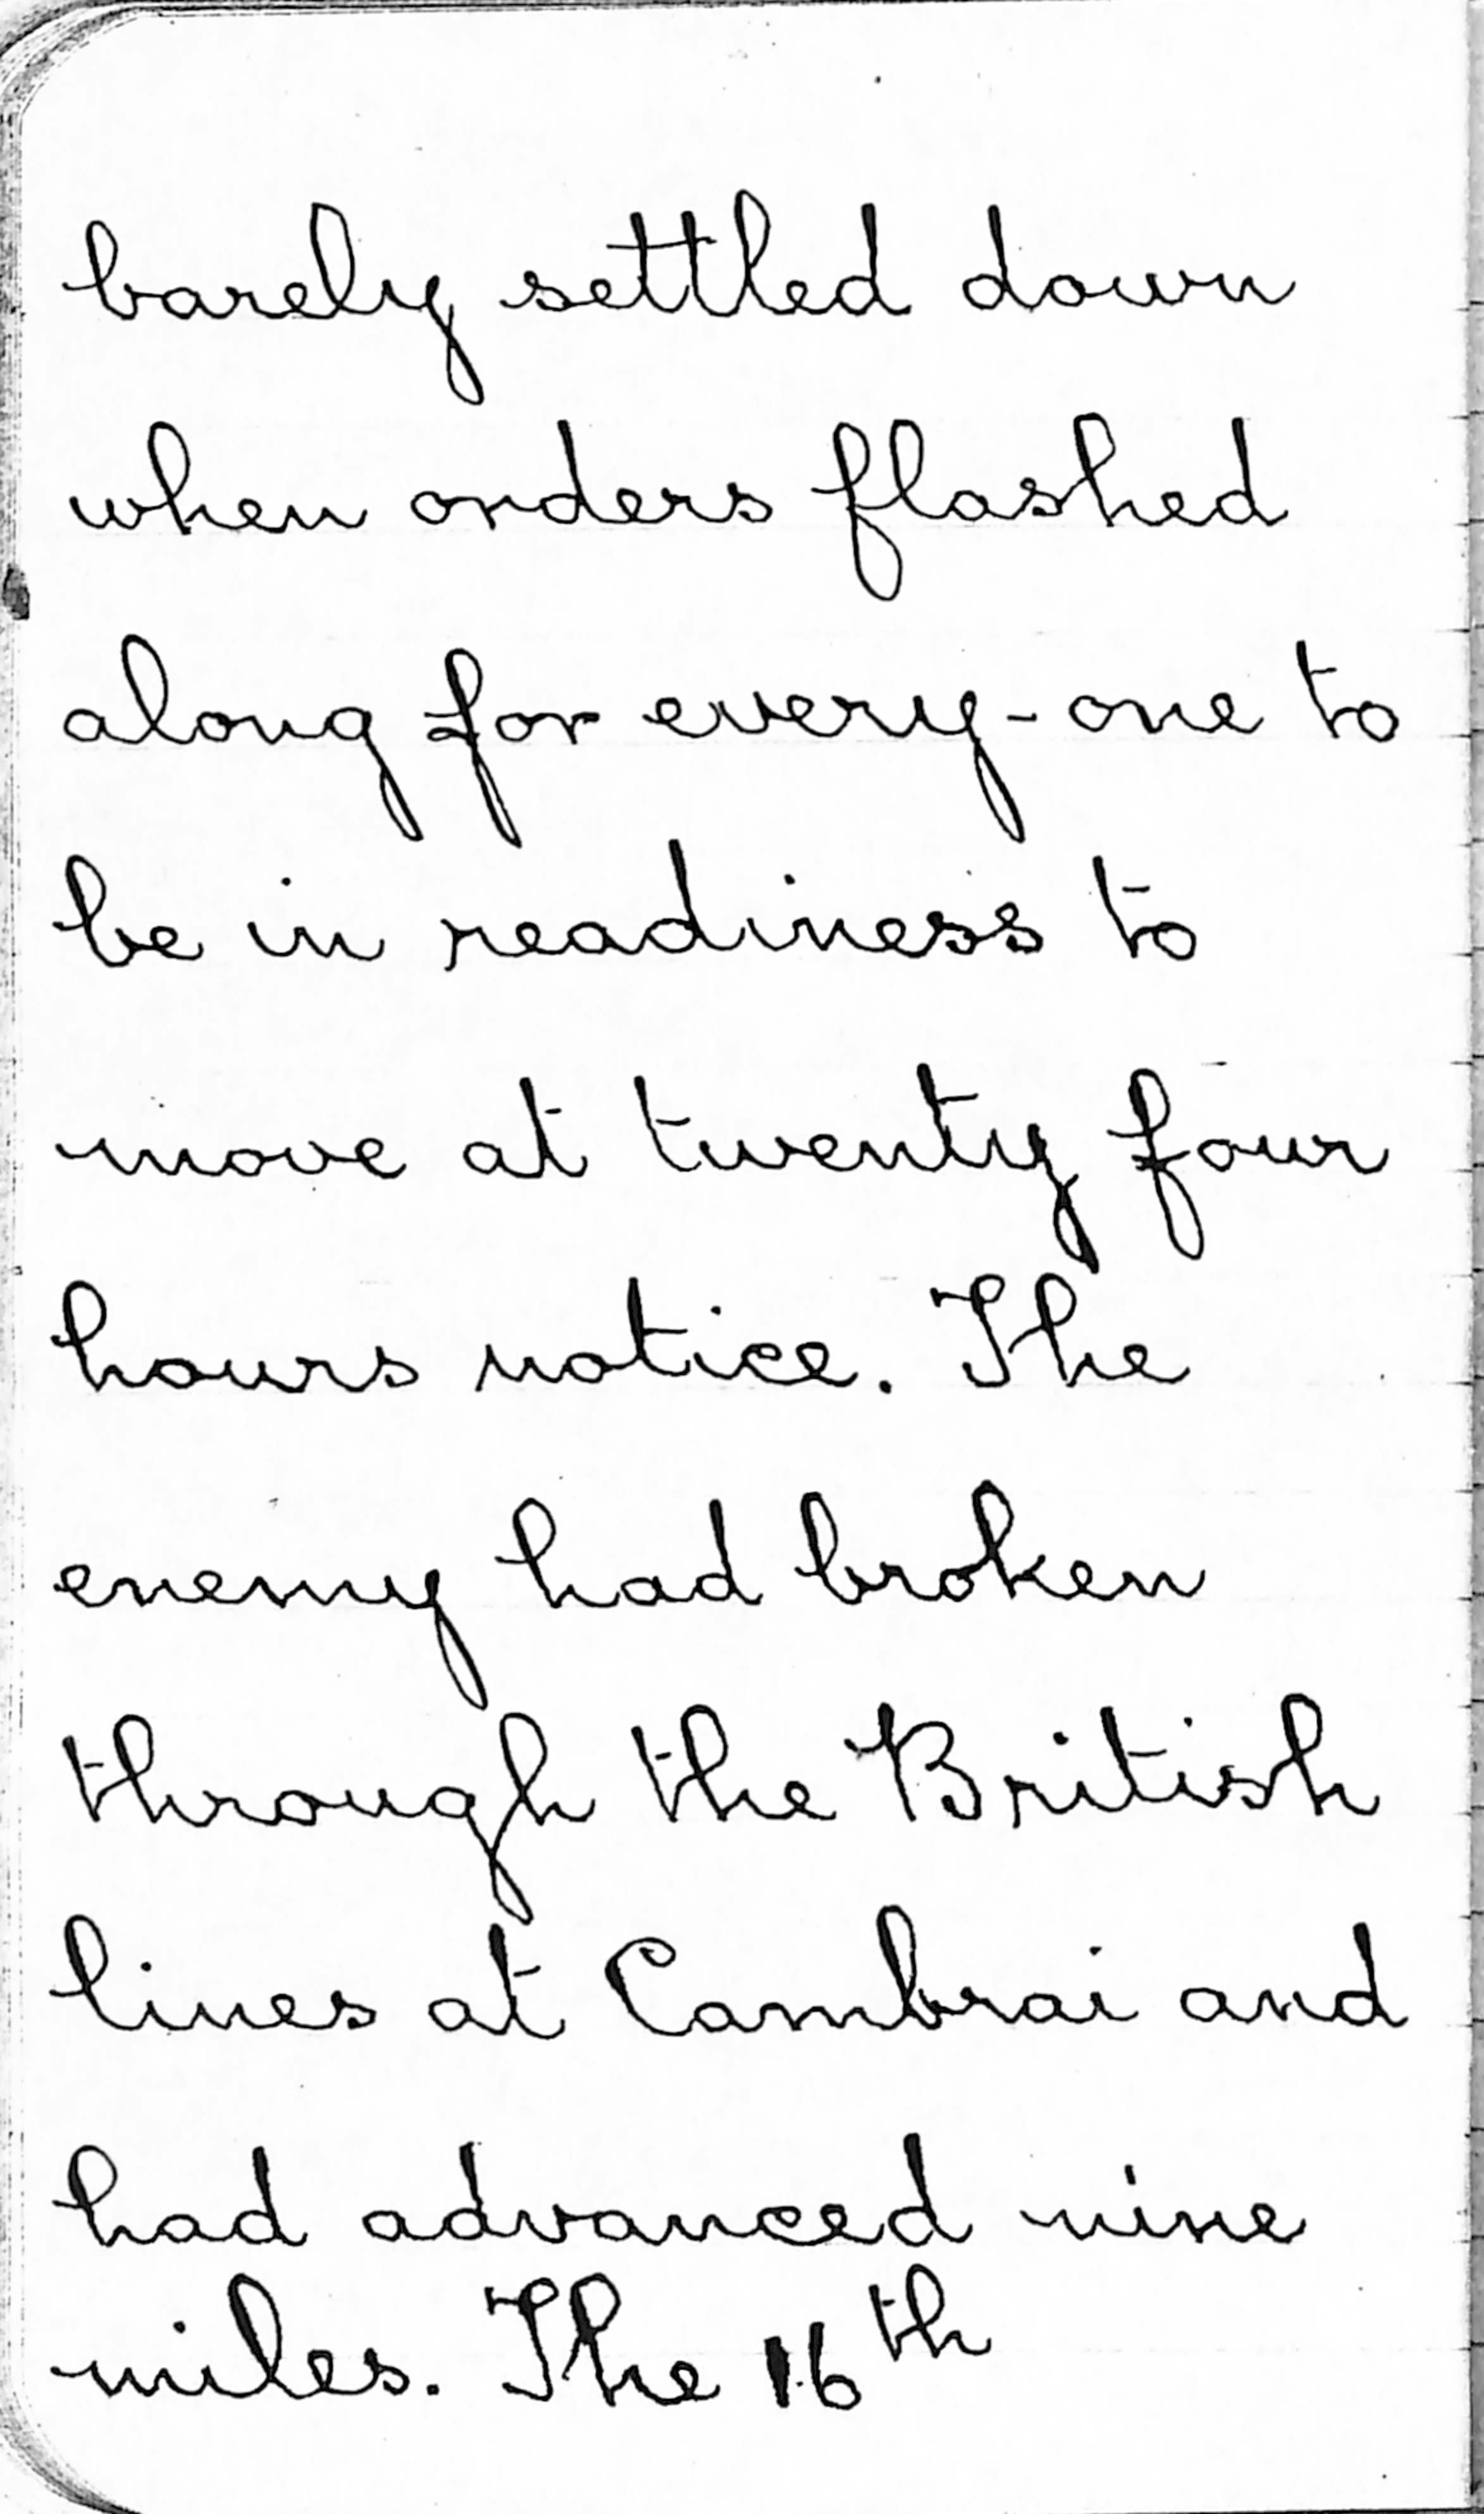 barely settled down
when orders flashed
along for every-one to
be in readiness to
move at twenty four
hours notice. The
enemy had broken
through the British
lines at Cambrai and
had advanced nine
miles. The 16th